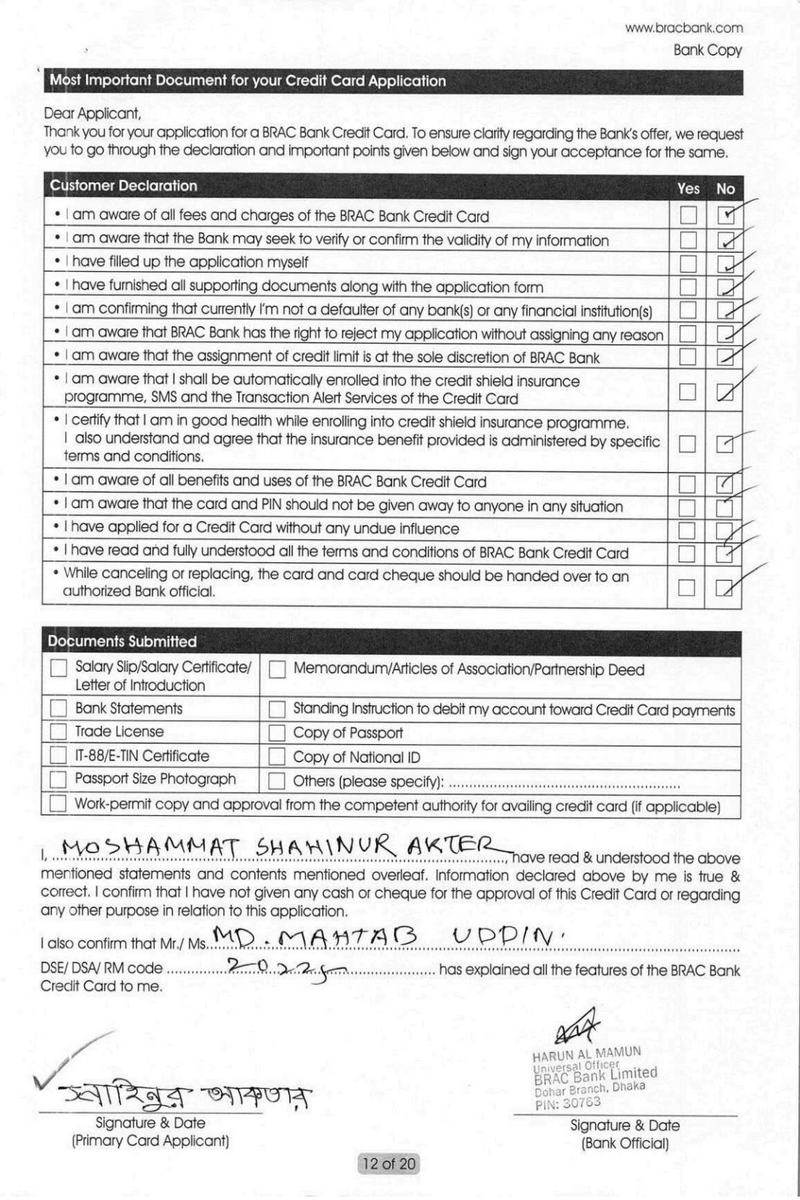 www.bracbank.com
Bank Copy
Most Important Document for your Credit Card Application
Dear Applicant,
Thank you for your application for a BRAC Bank Credit Card. To ensure clarity regarding the Bank's offer, we request
you to go through the declaration and important points given below and sign your acceptance for the same.
Customer Declaration Yes No
• I am aware of all fees and charges of the BRAC Bank Credit Card
• I am aware that the Bank may seek to verify or confirm the validity of my information
• I have filled up the application myself
• I have furnished all supporting documents along with the application form
• I am confirming that currently I'm not a defaulter of any bank(s) or any financial institution(s)
• I am aware that BRAC Bank has the right to reject my application without assigning any reason
• I am aware that the assignment of credit limit is at the sole discretion of BRAC Bank
• I am aware that I shall be automatically enrolled into the credit shield insurance
programme, SMS and the Transaction Alert Services of the Credit Card
• I certify that I am in good health while enrolling into credit shield insurance programme.
I also understand and agree that the insurance benefit provided is administered by specific
terms and conditions.
• I am aware of all benefits and uses of the BRAC Bank Credit Card
• I am aware that the card and PIN should not be given away to anyone in any situation
• I have applied for a Credit Card without any undue influence
• I have read and fully understood all the terms and conditions of BRAC Bank Credit Card
• While canceling or replacing, the card and card cheque should be handed over to an
authorized Bank official.
Documents Submitted
Salary Slip/Salary Certificate/
Letter of Introduction
Memorandum/Articles of Association/Partnership Deed
Bank Statements
Standing Instruction to debit my account toward Credit Card payments
Trade License
Copy of Passport
IT-88/E-TIN Certificate
Copy of National ID
Passport Size Photograph
Others (please specify):
Work-permit copy and approval from the competent authority for availing credit card (if applicable)
I, MOSHAMMAT SHAHINUR AKTER, have read & understood the above
mentioned statements and contents mentioned overleaf. Information declared above by me is true &
correct. I confirm that I have not given any cash or cheque for the approval of this Credit Card or regarding
any other purpose in relation to this application.
I also confirm that Mr./ Ms. MD. MAHTAB UDDIN
DSE/ DSA/ RM code has explained all the features of the BRAC Bank
Credit Card to me.
HARUN AL MAMUN
Universal Officer
BRAC Bank Limited
Dohar Branch, Dhaka
PIN: 30763
সাহিনুর আকতার
Signature & Date
(Primary Card Applicant)
Signature & Date
(Bank Official)
12 of 20